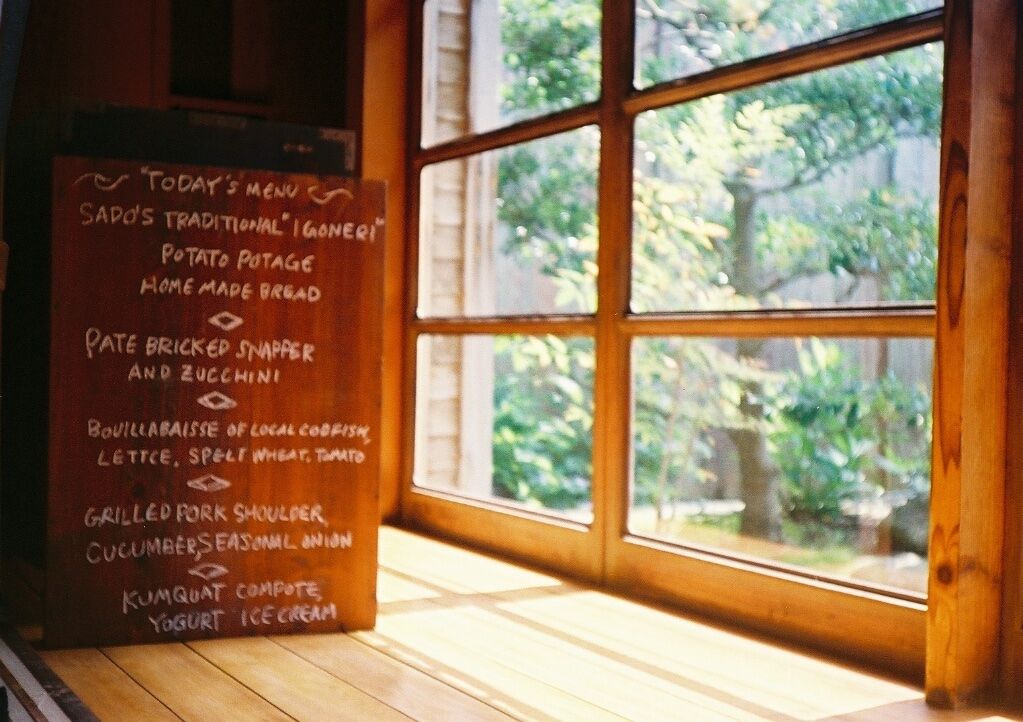 "TODAY'S MENU
SADO'S TRADITIONAL "IGONERI"
POTATO POTAGE
HOME MADE BREAD
PATE BRICKED SNAPPER
AND ZUCCHINI
BOUILLABAISSE OF LOCAL CODFISH,
LETTCE, SPELT WHEAT, TOMATO
GRILLED PORK SHOULDER,
CUCUMBER, SEASONAL ONION
KUMQUAT COMPOTE,
YOGURT ICE CREAM